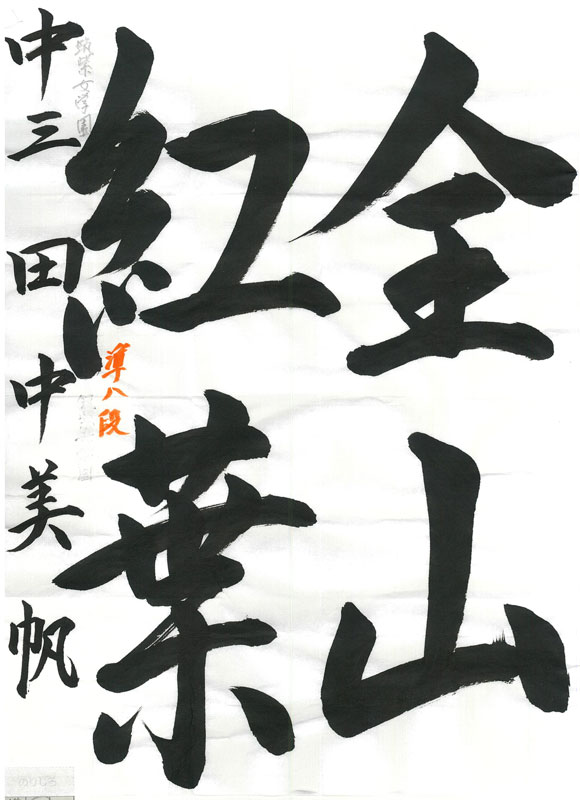 全山
紅葉
中三 田中美帆
準八段
筑紫女学園
のりしろ